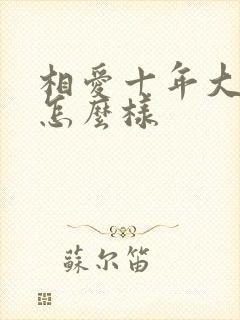 相愛十年大
怎麼樣
蘇尔笛